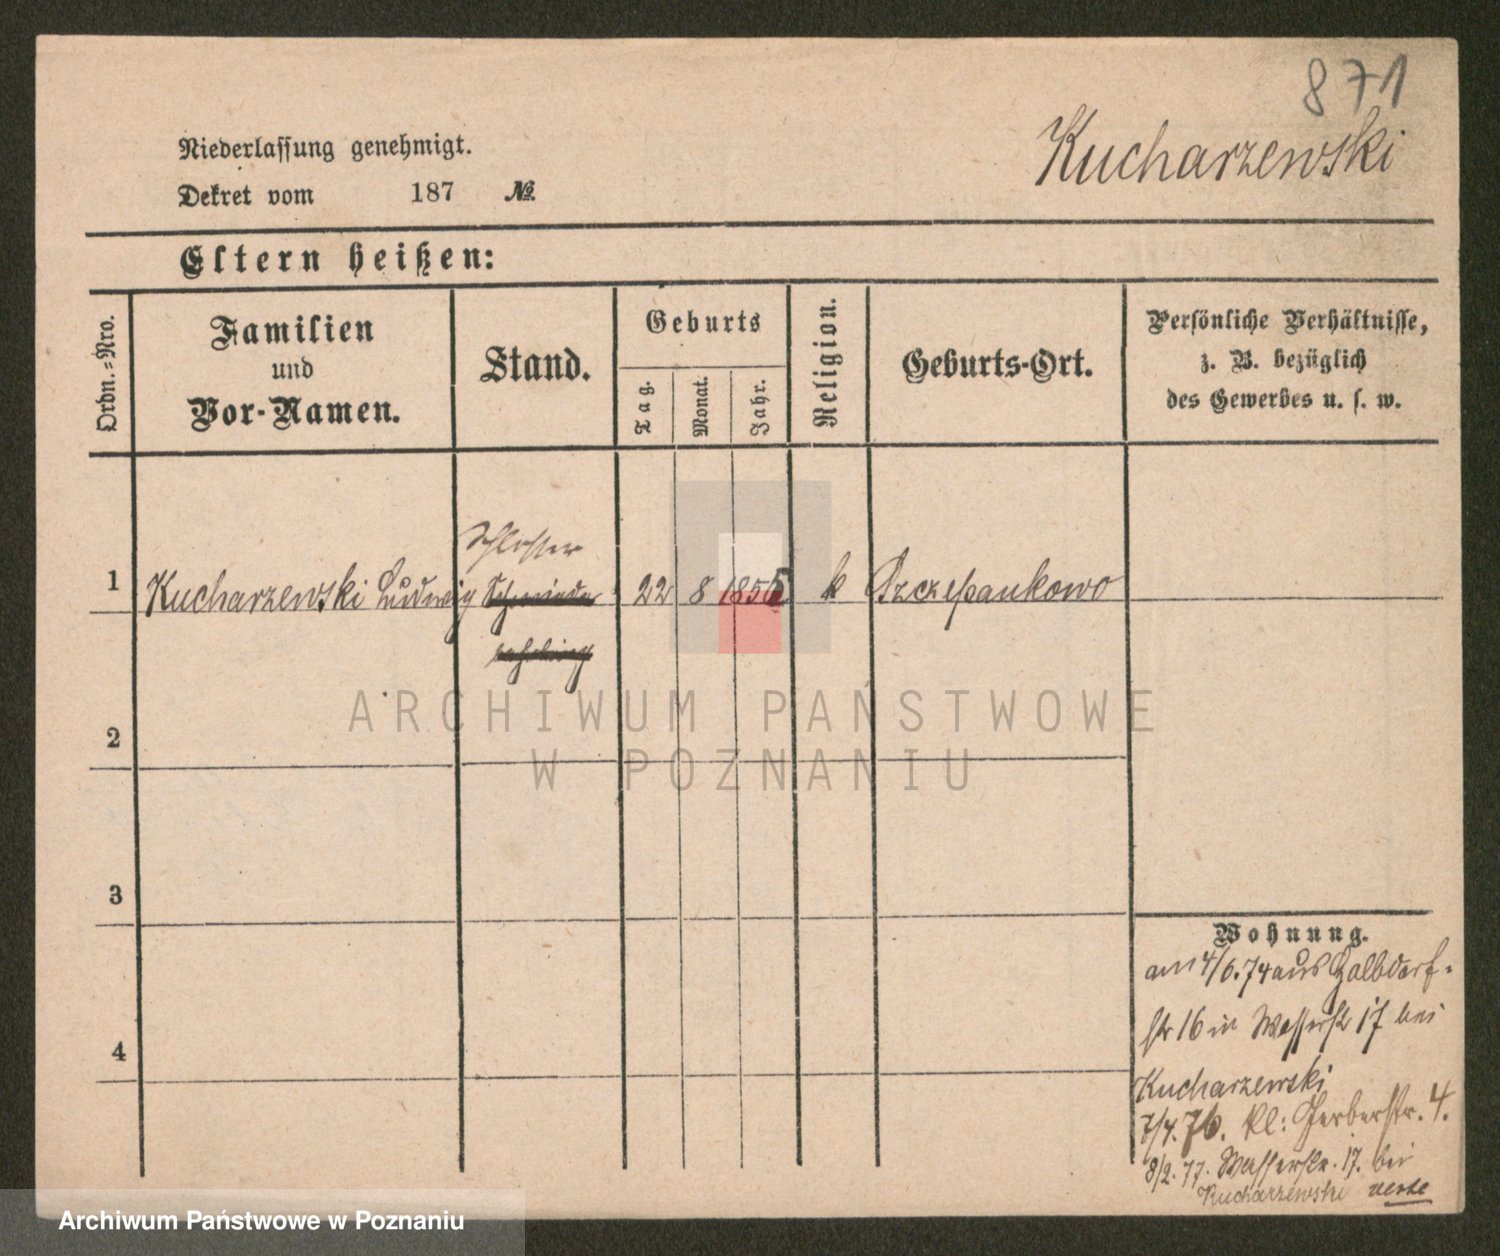 871
Kucharzewski
Niederlassung genehmigt.
Dekret vom 187 №.
Eltern heißen:
Ordn.=Nro.
Familien
und
Vor-Namen.
Stand.
Geburts
Tag.
Monat.
Jahr.
Religion.
Geburts-Ort.
Persönliche Verhältnisse,
z. B. bezüglich
des Gewerbes u. s. w.
Schlosser
1 Kucharzewski Ludwig Schmiede 22 8 1855 k Szczepankowo
lehrling
2
3
4
Wohnung.
am 4/6.74 aus Halbdorf=
str 16 in Wasserstr 17 bei
Kucharzewski
7/4.76. kl: Gerberstr. 4.
8/2.77. Wasserstr. 17. bei
Kucharzewski verte
ARCHIWUM PAŃSTWOWE
W POZNANIU
Archiwum Państwowe w Poznaniu